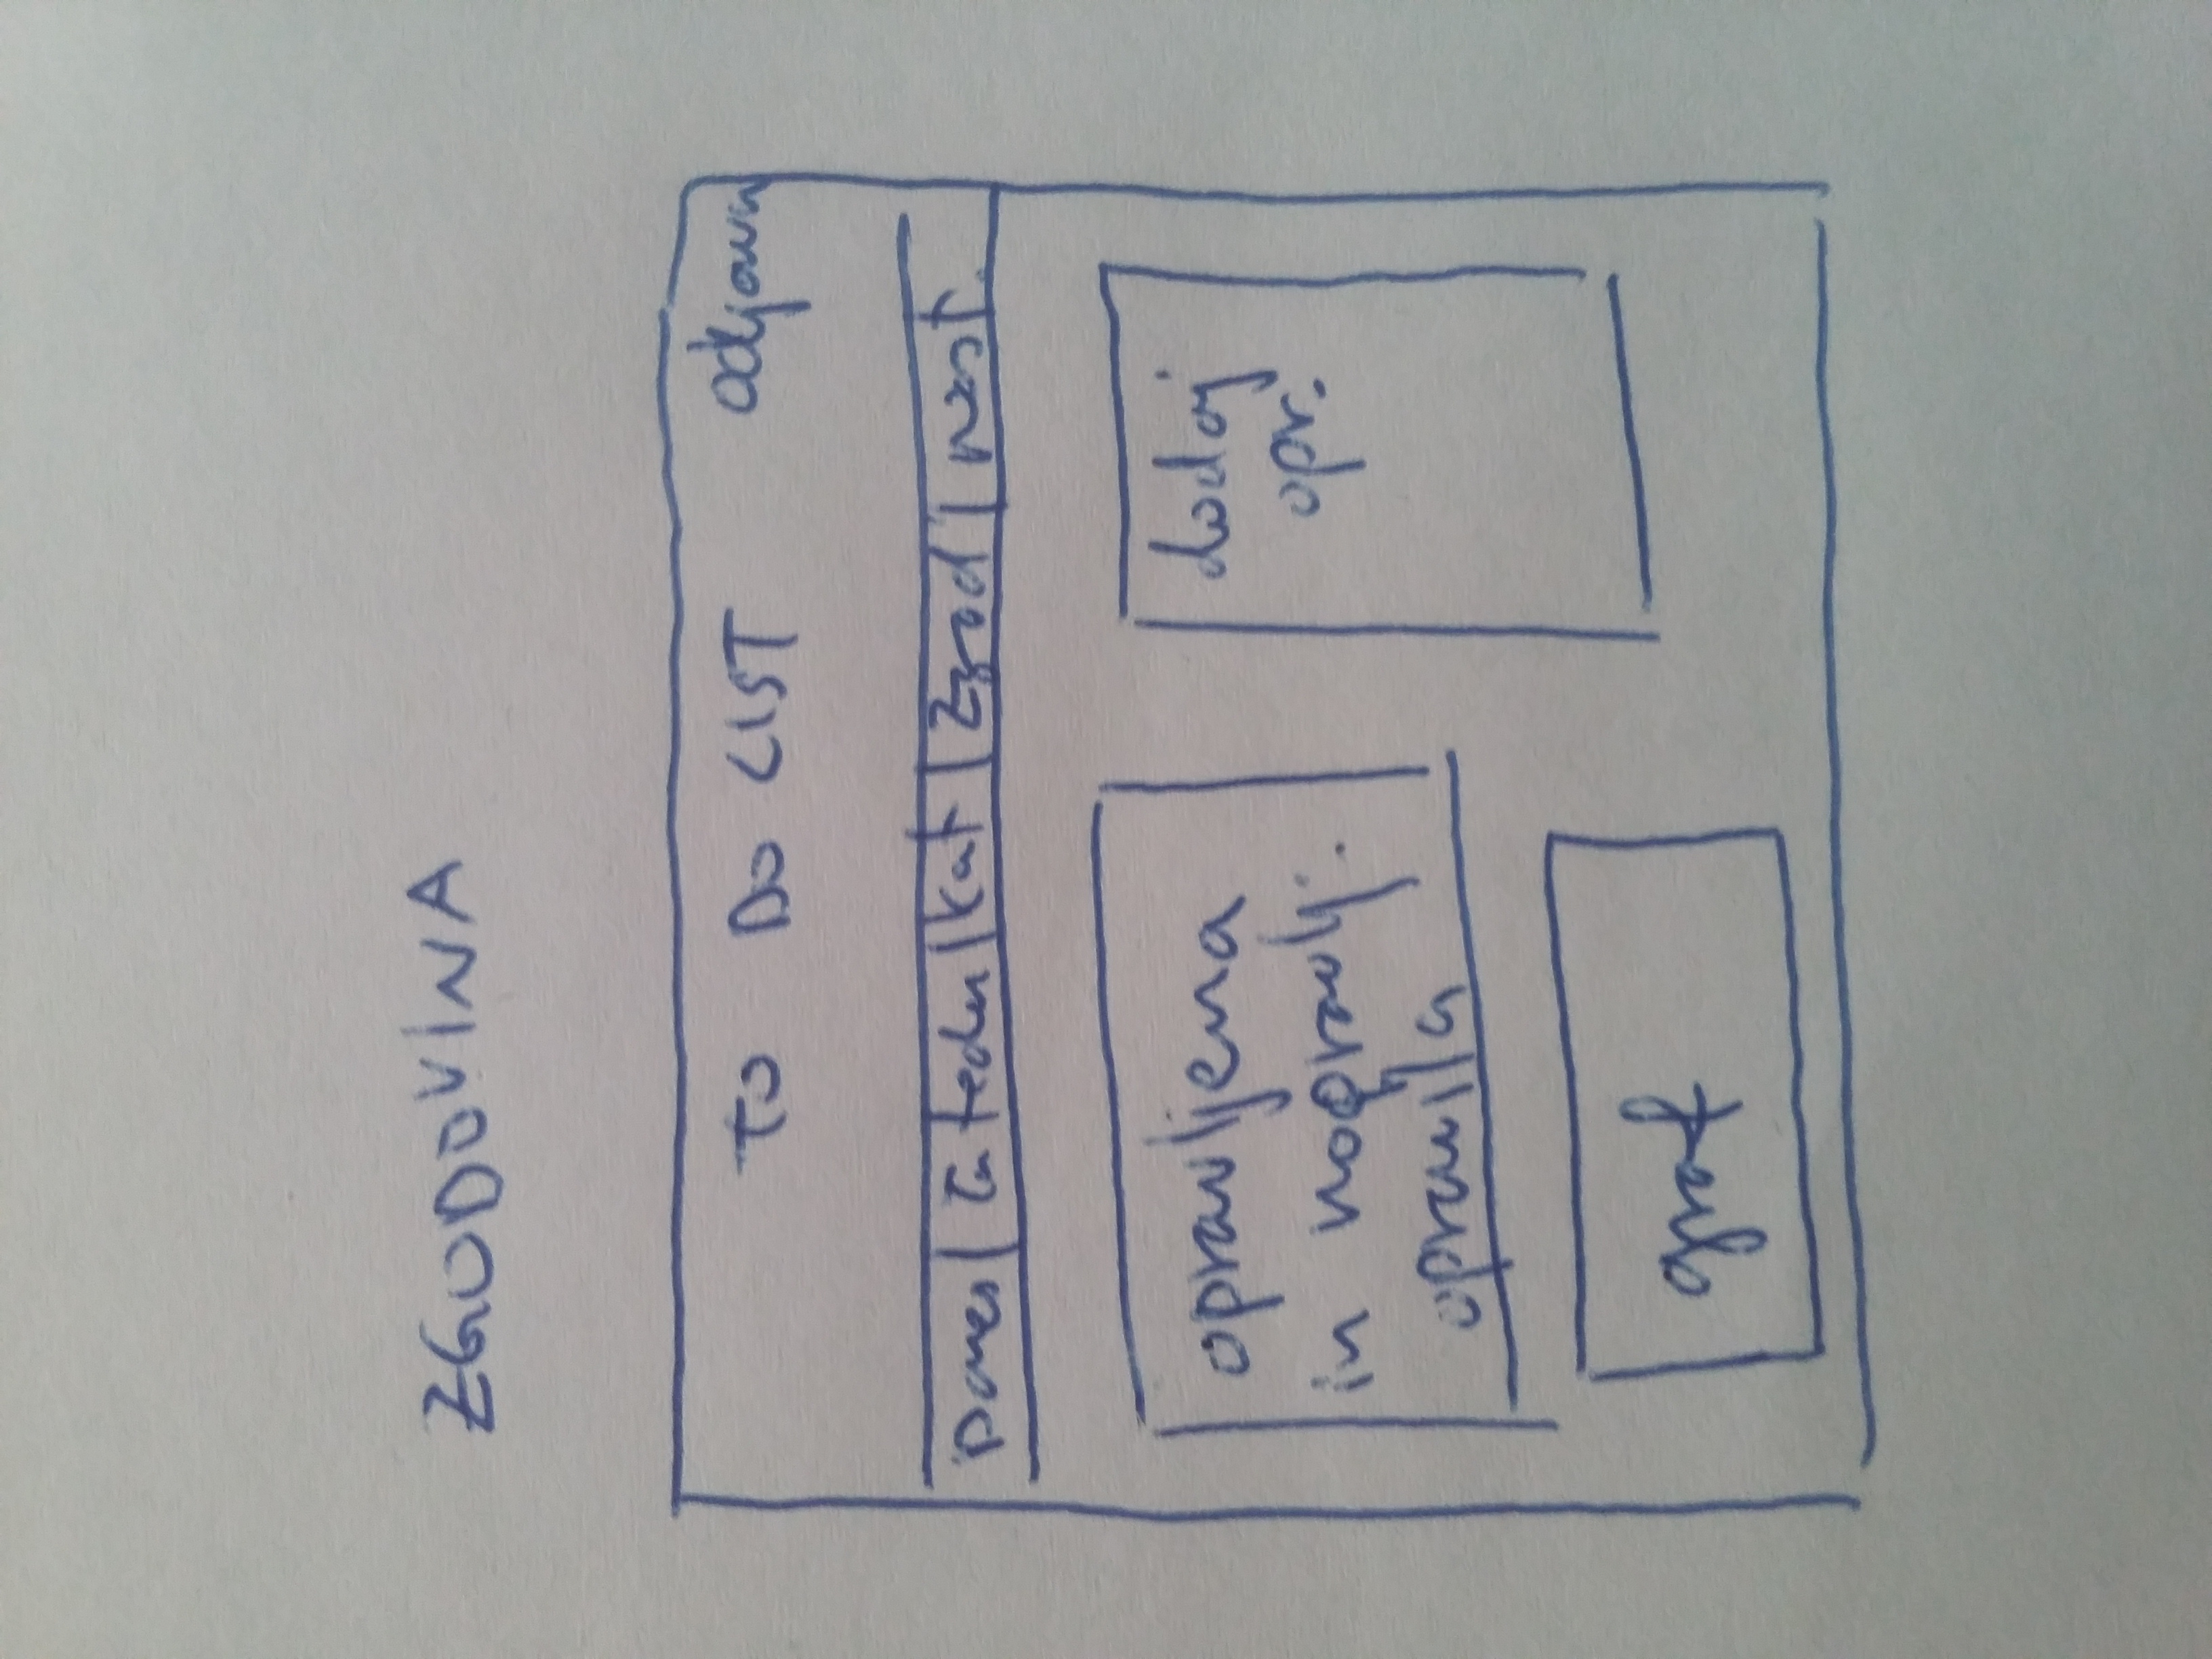 ZGODOVINA
TO DO LIST odjava
Danes | Ta teden | Kat | Zgod | Nast.
opravljena
in neopravlj.
opravila
dodaj
opr.
graf